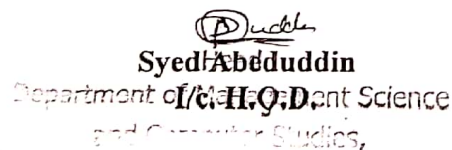 Syed Abeduddin
Head
I/c. H.O.D.
Department of Management Science
and Computer Studies,